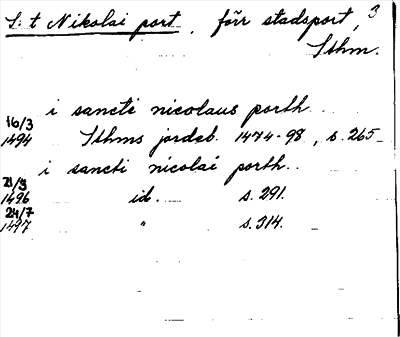 S:t Nikolai port, förr stadsport, 3
Sthm.
i sancti nicolaus porth
16/3
1494 Sthms jordeb. 1474-98, s. 265
i sancti nicolai porth.
21/3
1496 id. s. 291.
24/7
1497 " s. 314.